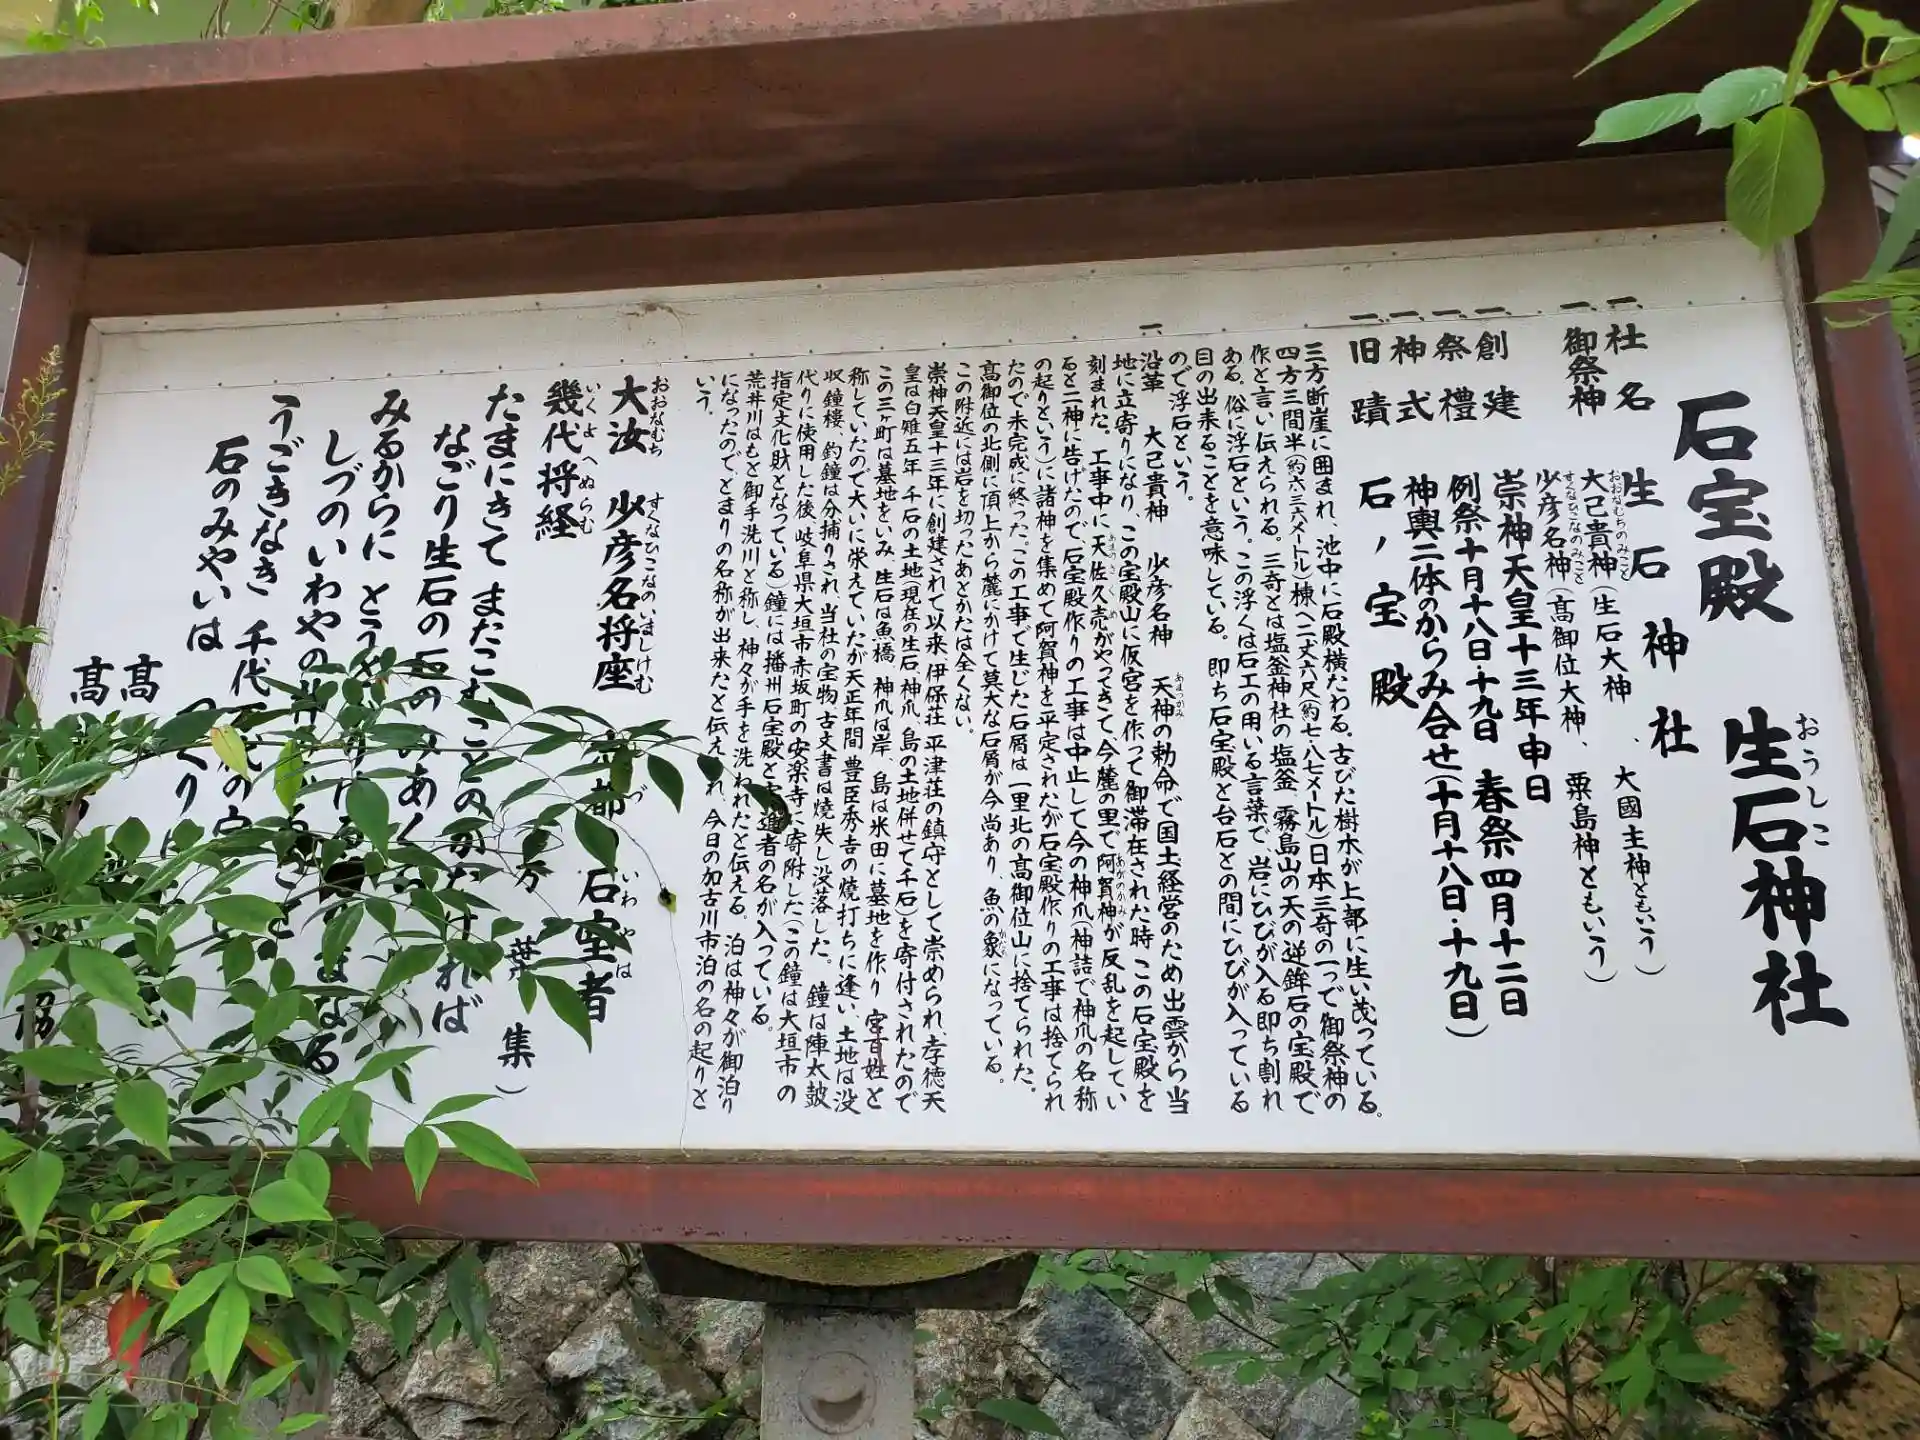 石宝殿 生石神社
おうしこ
一、社名 生石神社
一、御祭神 大己貴神(生石大神、大國主神ともいう)
おおなむちのみこと
少彦名神(高御位大神、粟島神ともいう)
すくなひこなのみこと
一、創建 崇神天皇十三年申日
一、祭禮 例祭十月十八日・十九日 春祭四月十二日
一、神式 神輿二体のからみ合せ(十月十八日・十九日)
一、旧蹟 石ノ宝殿
三方断崖に囲まれ、池中に石殿横たわる。古びた樹木が上部に生い茂っている。
四方三間半(約六・三六メートル)棟へ二丈六尺(約七・八七メートル)日本三奇の一つで御祭神の
作と言い伝えられる。三奇とは塩釜神社の塩釜、霧島山の天の逆鉾石の宝殿で
ある。俗に浮石という。この浮くは石工の用いる言葉で、岩にひびが入る即ち割れ
目の出来ることを意味している。即ち石宝殿と台石との間にひびが入っている
ので浮石という。
一、沿革 大己貴神 少彦名神 天神の勅命で国土経営のため出雲から当
あまつかみ
地に立寄りになり、この宝殿山に仮宮を作って御滞在された時この石宝殿を
刻まれた。工事中に天佐久売がやってきて、今麓の里で阿賀神が反乱を起してい
あまのさくめ あがのかみ
ると二神に告げたので、石宝殿作りの工事は中止して今の神爪(神詰で神爪の名称
の起りという)に諸神を集めて阿賀神を平定されたが石宝殿作りの工事は捨てられ
たので未完成に終った。この工事で生じた石屑は一里北の高御位山に捨てられた。
高御位の北側に頂上から麓にかけて莫大な石屑が今尚あり、魚の象になっている。
かたち
この附近には岩を切ったあとかたは全くない。
崇神天皇十三年に創建されて以来、伊保荘、平津荘の鎮守として崇められ、孝徳天
皇は白雉五年 千石の土地現在の生石、神爪、島の土地併せて千石)を寄付されたので
この三ヶ町は墓地をいみ、生石は魚橋、神爪は岸、島は米田に墓地を作り 宮百姓と
称していたので大いに栄えていたが天正年間豊臣秀吉の焼打ちに逢い、土地は没
収、鐘楼、釣鐘は分捕りされ、当社の宝物、古文書は焼失し没落した。鐘は陣太鼓
代りに使用した後、岐阜県大垣市赤坂町の安楽寺に寄附した(この鐘は大垣市の
指定文化財となっている)鐘には播州石宝殿と進者の名が入っている。
荒井川はもと御手洗川と称し、神々が手を洗われたと伝える。泊は神々が御泊り
になったので、とまりの名称が出来たと伝えれ、今日の加古川市泊の名の起りと
いう。
大汝 少彦名将座 石室者
おおなむち すくなひこなのいましけむ づ いわやは
幾代将経
いくよへぬらむ
万葉集)
たまにきて またこむことの かたければ
なごり生石の石の みあく
みるからに とう
しづのいわやの まなる
うごきなき 千代 の
石のみやいは つくり
高
高